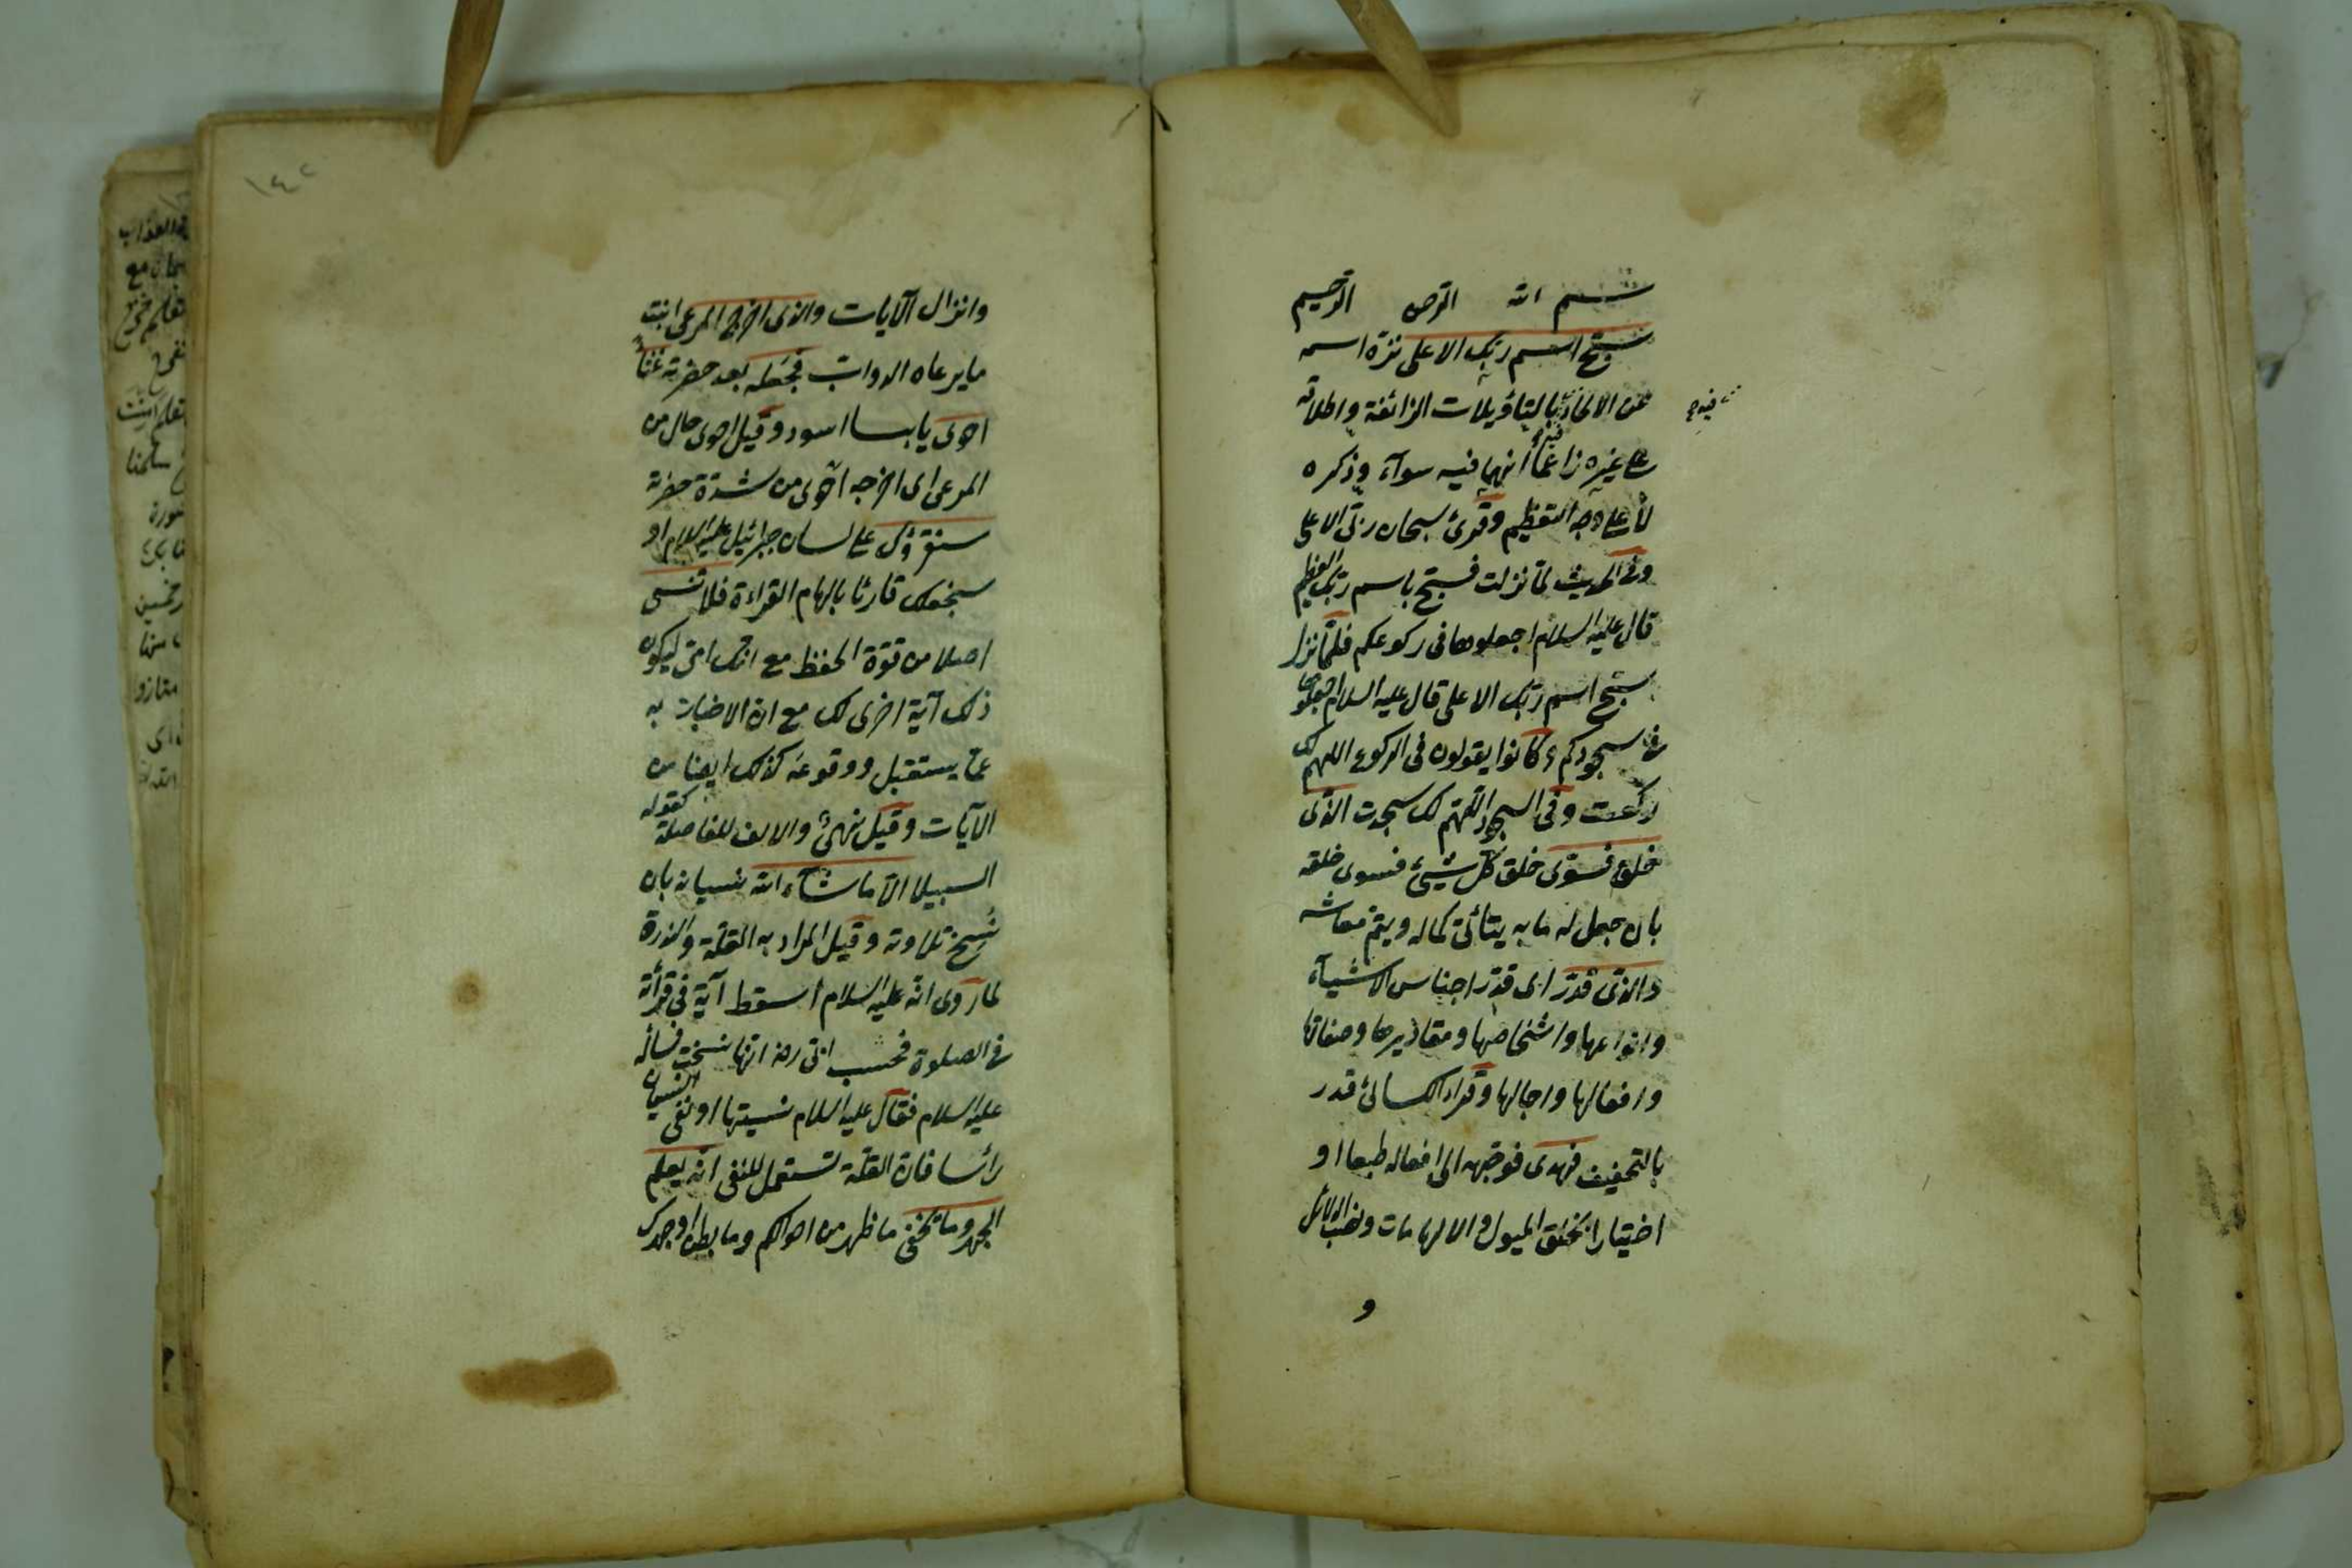 بسم الله الرحمن الرحيم
سبح اسم ربك الاعلى نزه اسمه
عن الالحاد بالتاويلات الزائغة واطلاقه
على غيره زاعما انهما فيه سواء وذكره
لا على وجه التعظيم وقرئ سبحان ربي الاعلى
وفي الحديث لما نزلت فسبح باسم ربك العظيم
قال عليه السلام اجعلوها في ركوعكم فلما نزل
سبح اسم ربك الاعلى قال عليه السلام اجعلوها
في سجودكم وكانوا يقولون في الركوع اللهم لك
ركعت وفي السجود اللهم لك سجدت الذي
خلق فسوى خلق كل شيئ فسوى خلقه
بان جعل له ما به يتأتى كماله ويتم معاشه
والذي قدر اى قدر اجناس الاشياء
وانواعها واشخاصها ومقاديرها وصفاتها
وافعالها واجالها وقراء الكسائى قدر
بالتخفيف فهدى فوجهه الى افعاله طبعا او
اختيارا بخلق الميول والالهامات ونصب الدلائل
و
١٤٢
وانزال الآيات والذى اخرج المرعى انبت
ما يرعاه الدواب فجعله بعد خضرته غثاء
احوى يابسا اسود وقيل احوى حال من
المرعى اى اخرجه احوى من شدة خضرته
سنقرؤك على لسان جبرائيل عليه السلام او
سنجعلك قارئا بالهام القراءة فلا تنسى
اصلا من قوة الحفظ مع انك امى ليكون
ذلك آية اخرى لك مع ان الاخبار به
عما يستقبل ووقوعه كذلك ايضا من
الآيات وقيل نهئ والالف للفاصلة كقوله
السبيلا الا ما شاء الله نسيانه بان
نسخ تلاوته وقيل المراد به القلة والندرة
لما روى انه عليه السلام اسقط آية في قرأته
في الصلوة فحسب ابى رضه انها نسخت فسأله
عليه السلام فقال عليه السلام نسيتها او نفى النسيان
رأسا فان القلة تستعمل للنفى انه يعلم
الجهر وما يخفى ما ظهر من احوالكم وما بطن او جهرك